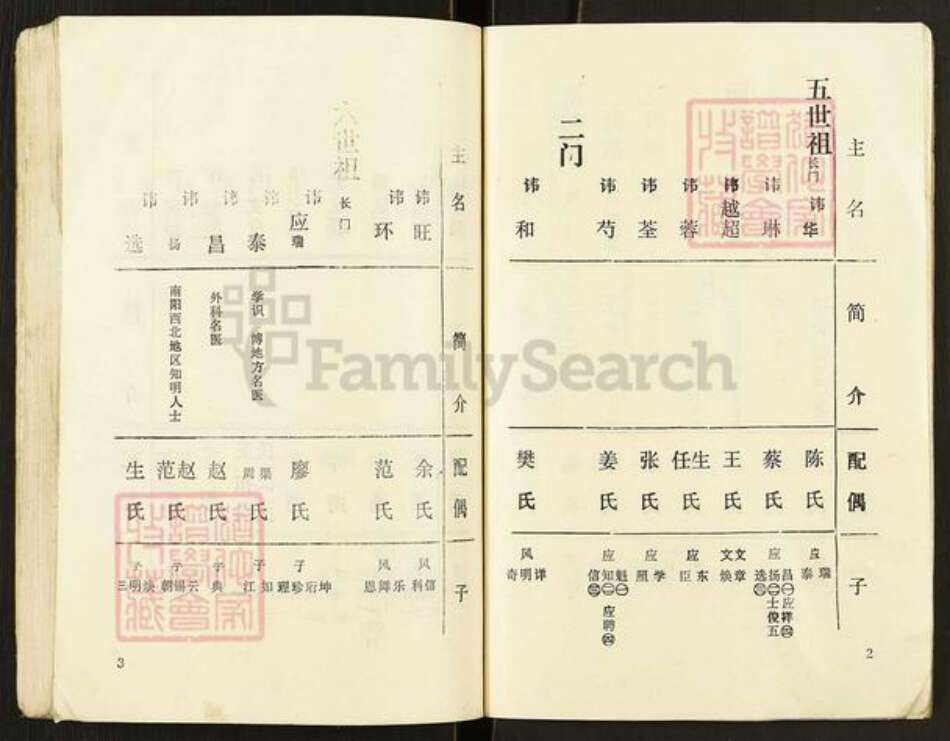 五世祖
长门
主名
讳华
讳琳
讳越超
讳蓉
讳荃
讳芍
二门
讳和
简介
配偶
陈氏
蔡氏
王氏
任生氏
张氏
姜氏
樊氏
子
应瑞泰
应昌㊀扬㊁选㊂应祥㊃士俊五
文焕文章
应东臣
应学照
应魁㊀知㊁信㊂应聘㊃
风详明奇
2
主名
讳旺
讳环
六世祖
长门
讳应瑞
讳泰
讳昌
讳扬
讳选
简介
学识 博地方名医
外科名医
南阳西北地区知明人士
配偶
余氏
范氏
廖氏
周梁氏
赵氏
范赵氏
生氏
子
风信科
风乐舞恩
子坤珍理
子如江
子典
子云锡朝
子焕明三
3
FamilySearch